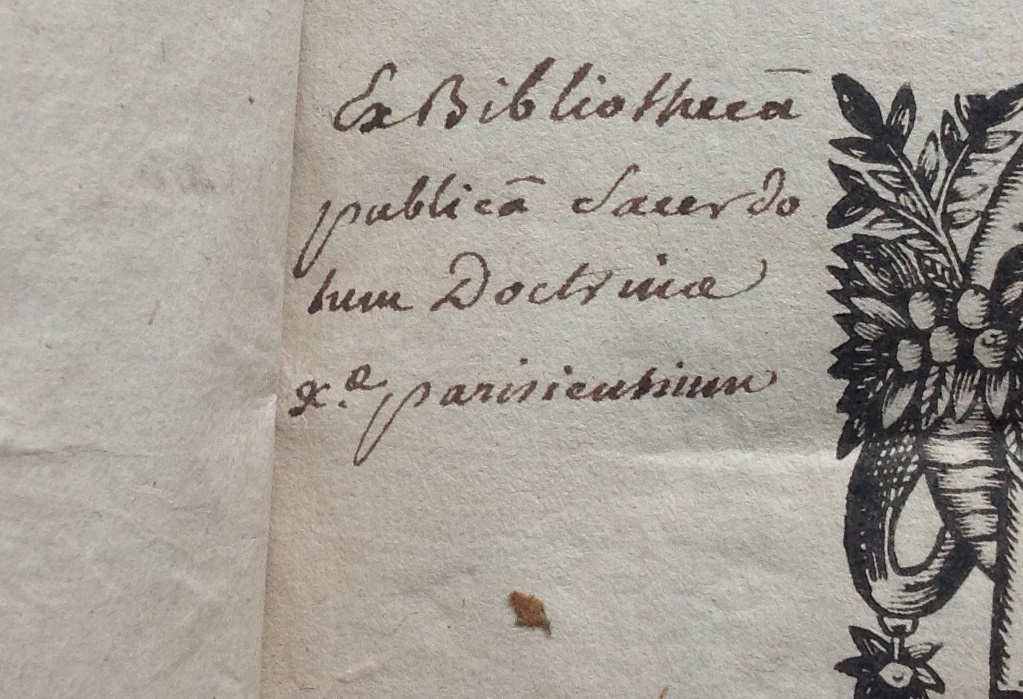 Ex Bibliothecā
publicā Sacerdo
tum Doctrinæ
x.æ parisiensium